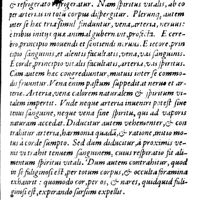 & refrigerato refrigeratur. Nam spiritus vitalis, ab co
per arterias in totũ corpus dispergitur. Plerunq, autem
inter se hæc trãsfimul finduntur, vena, arteria, nervus:
tribus initijs qua animal gubern
principio mouendi et sentiendi nervus. E secore prin-
cipio sanguinis, et alentis facultatis, vena, vas sanguinis.
E corde principio vitalis facultatis, arteria, vas spiritus.
Cum autem hæc congrediuntur, mutuũ inter se commo-
du fruuntur. Vena nam pastum suppeditat neruo et ar-
teriæ. Arteria vena calorem naturalem & spiritum vi-
talem impertit. Vnde neque arteria inueniri potest sine
tenui sanguine, neque vena sine spiritu, qui ad vaporis
naturam accedat. Diducitur autem vehementer, & con-
trahitur arteria, harmonia quadã, & ratione, instar mo-
tus à corde sumpto. Sed dum diducitur, à proximis ve-
nis vi trahit tenuem sanguinem, cuius respiratio fit ali-
mentum spiritui vitali. Dum autem contrahitur, quod
in se fuliginosi est, per totum corpus, & occulta foramina
exhaurit: quomodo cor, per os, & nares, quidquid fuli-
ginosi est, expirando sursum expellit.